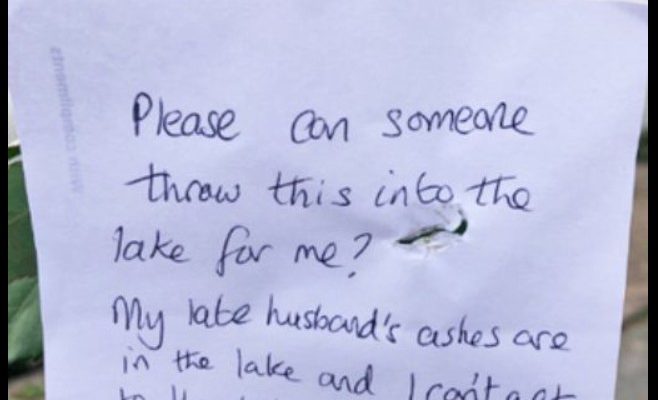 Please can someone
throw this into the
lake for me?
My late husband's ashes are
in the lake and I can't get
With compliments